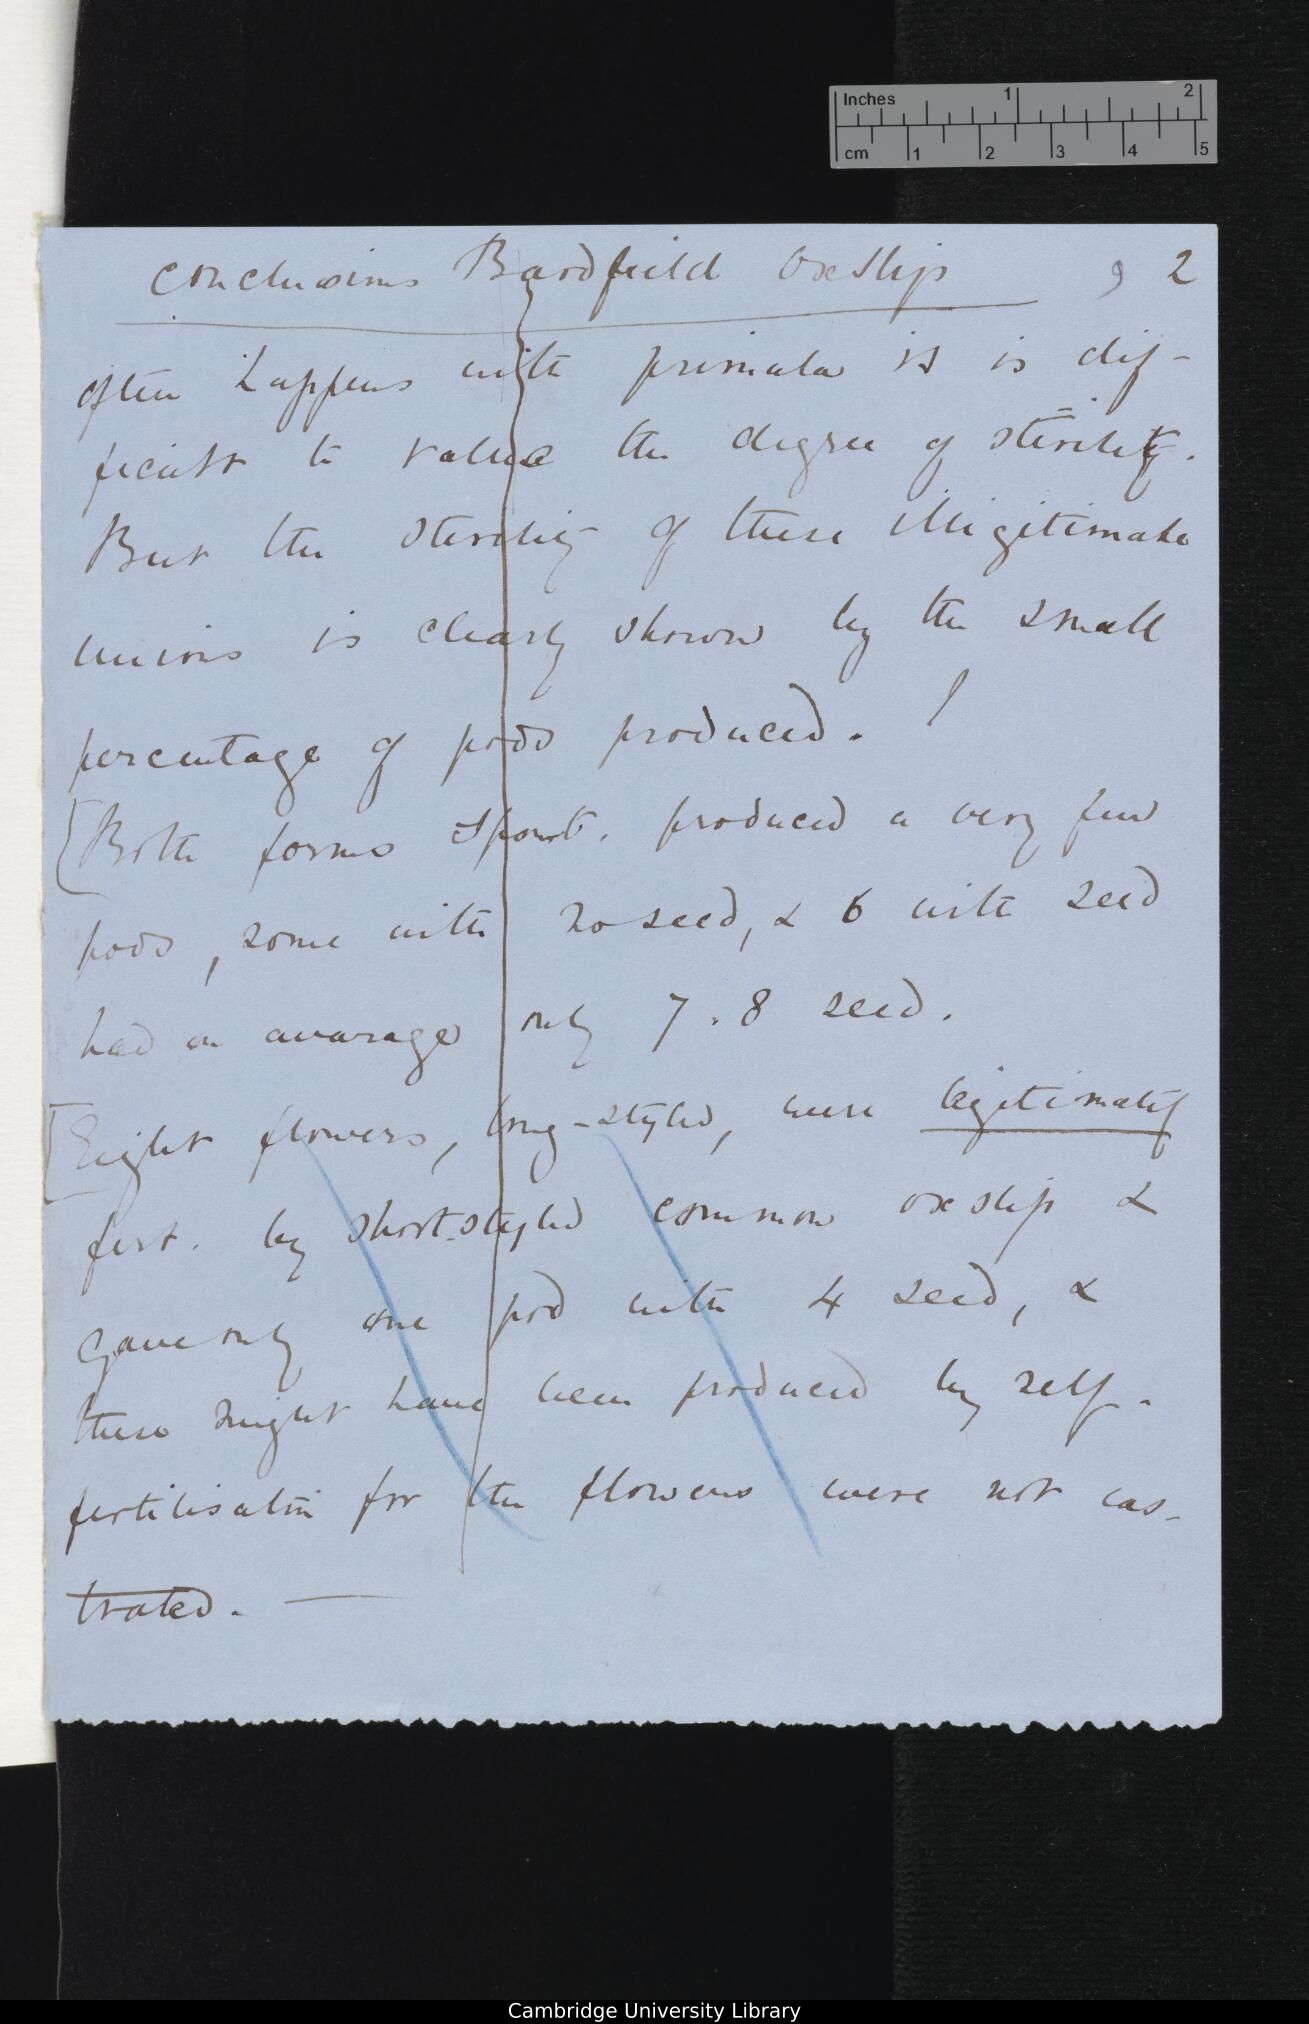 Inches 1 2
cm 1 2 3 4 5
Conclusions Bardfield Oxslip 9 2
often happens with primula it is dif-
ficult to value the degree of sterility.
But the sterility of these illigitimate
unions is clearly shown by the small
percentage of pods produced.
[Both forms spont. produced a very few
pods, some with no seed, & 6 with seed
had on avarage only 7.8 seed.
[Eight flowers, long-styled, were legitimately
fert. by short-styled common oxslip &
gave only one pod with 4 seed, &
these might have been produced by self-
fertilisation for the flowers were not cas-
trated. —
Cambridge University Library